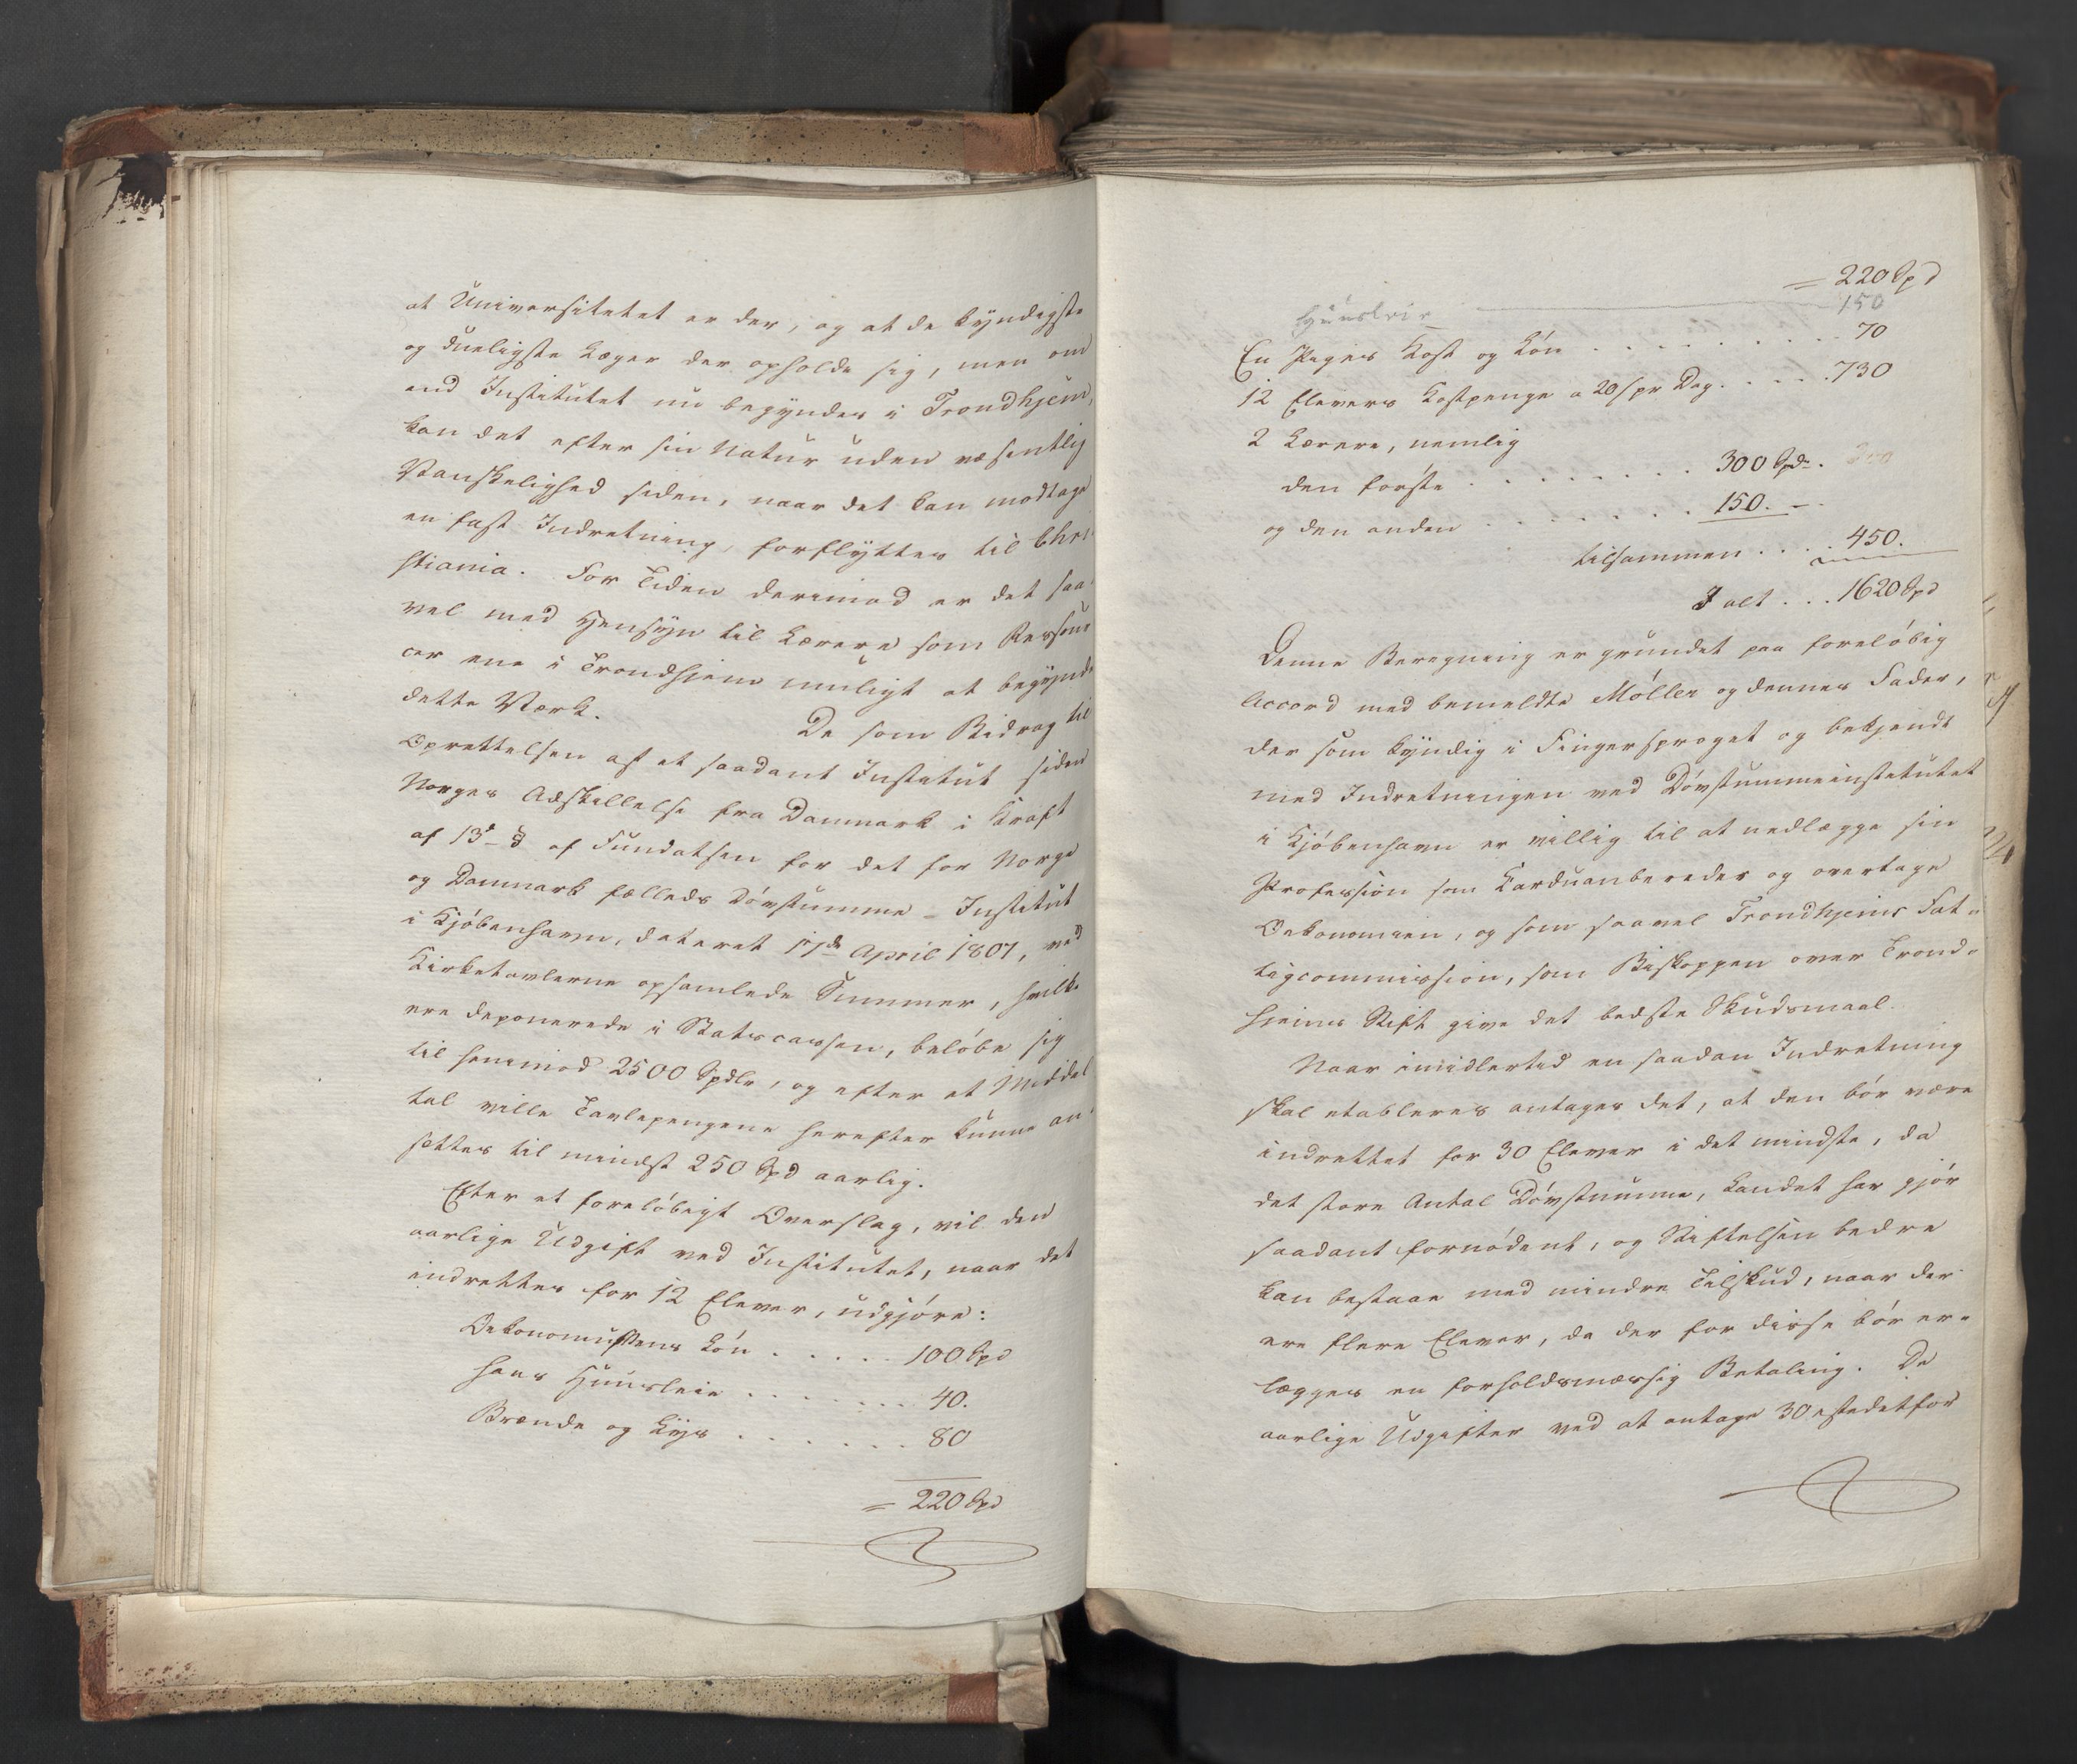 at Universitetet er der, og at de kyndigste
og dueligste Læger der opholde sig, men om
end Institutet nu begyndes i Trondhjem,
kan det efter sin Natur uden væsentlig
Vanskelighed siden, naar det kan modtage
en fast Indretning, forflyttes til Chri-
stiania. For Tiden derimod er det saa-
vel med Hensyn til Lærere som Ressour
cer ene i Trondhjem muligt at begynde
dette Værk.
De som Bidrag til
Oprettelsen af et saadant Institut siden
Norges Adskillelse fra Danmark i Kraft
af 13d § af Fundatsen for det for Norge
og Danmark fælleds Døvstumme-Institut
i Kjøbenhavn, dateret 17de April 1807, ved
Kirketavlerne opsamlede Summer, hvilke
ere deponerede i Statscassen, beløbe sig
til henimod 2500 Spdlr, og efter et Middel
tal ville Tavlepengene herefter kunne an-
sættes til mindst 250 Spd aarlig.
Efter et foreløbigt Overslag, vil den
aarlige Udgift ved Institutet, naar det
indrettes for 12 Elever, udgjøre:
Oekonomussens Løn . . . . . 100 Spd
hans Huusleie . . . . . . . 40.
Brænde og Lys . . . . . . . 80
= 220 Spd
= 220 Spd
Huusleie 150
En Piges Kost og Løn . . . . . . . . . 70
12 Elevers Kostpenge a 20 s pr Dag . . . . . 730
2 Lærere, nemlig
den første . . . . . . . 300 Spd. 300
og den anden . . . . . . . 150. -
tilsammen . . . . 450.
I alt . . . 1620 Spd
Denne Beregning er grundet paa foreløbig
Accord med bemeldte Møller og dennes Fader,
der som kyndig i Fingersproget og bekjendt
med Indretningen ved Døvstummeinstitutet
i Kjøbenhavn er villig til at nedlægge sin
Profession som Karduanbereder og overtage
Oekonomien, og som saavel Trondhjems Fat-
tigcommission, som Biskoppen over Trond-
hjems Stift give det bedste Skudsmaal.
Naar imidlertid en saadan Indretning
skal etableres antages det, at den bør være
indrettet for 30 Elever i det mindste, da
det store Antal Døvstumme, Landet har gjør
saadant fornødent, og Stiftelsen bedre
kan bestaae med mindre Tilskud, naar der
ere flere Elever, da der for disse bør er-
lægges en forholdsmæssig Betaling. De
aarlige Udgifter ved at antage 30 istedetfor